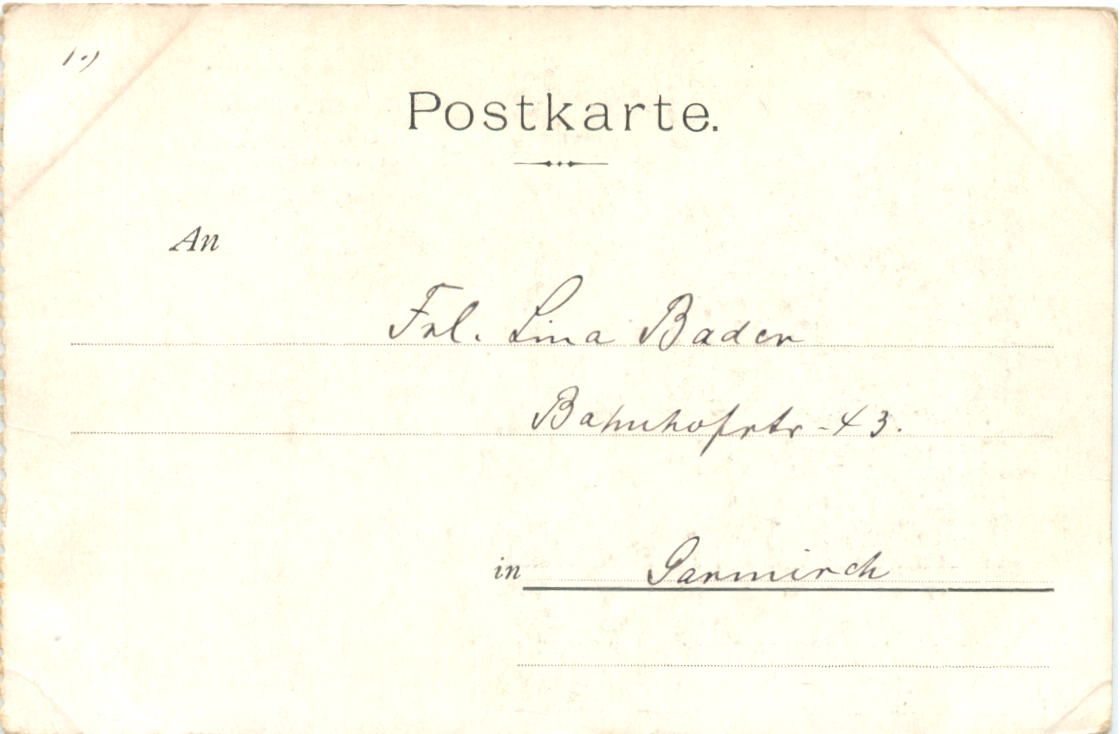 1.)
Postkarte.
An
Frl. Lina Bader
Bahnhofstr. 43.
in Garmisch